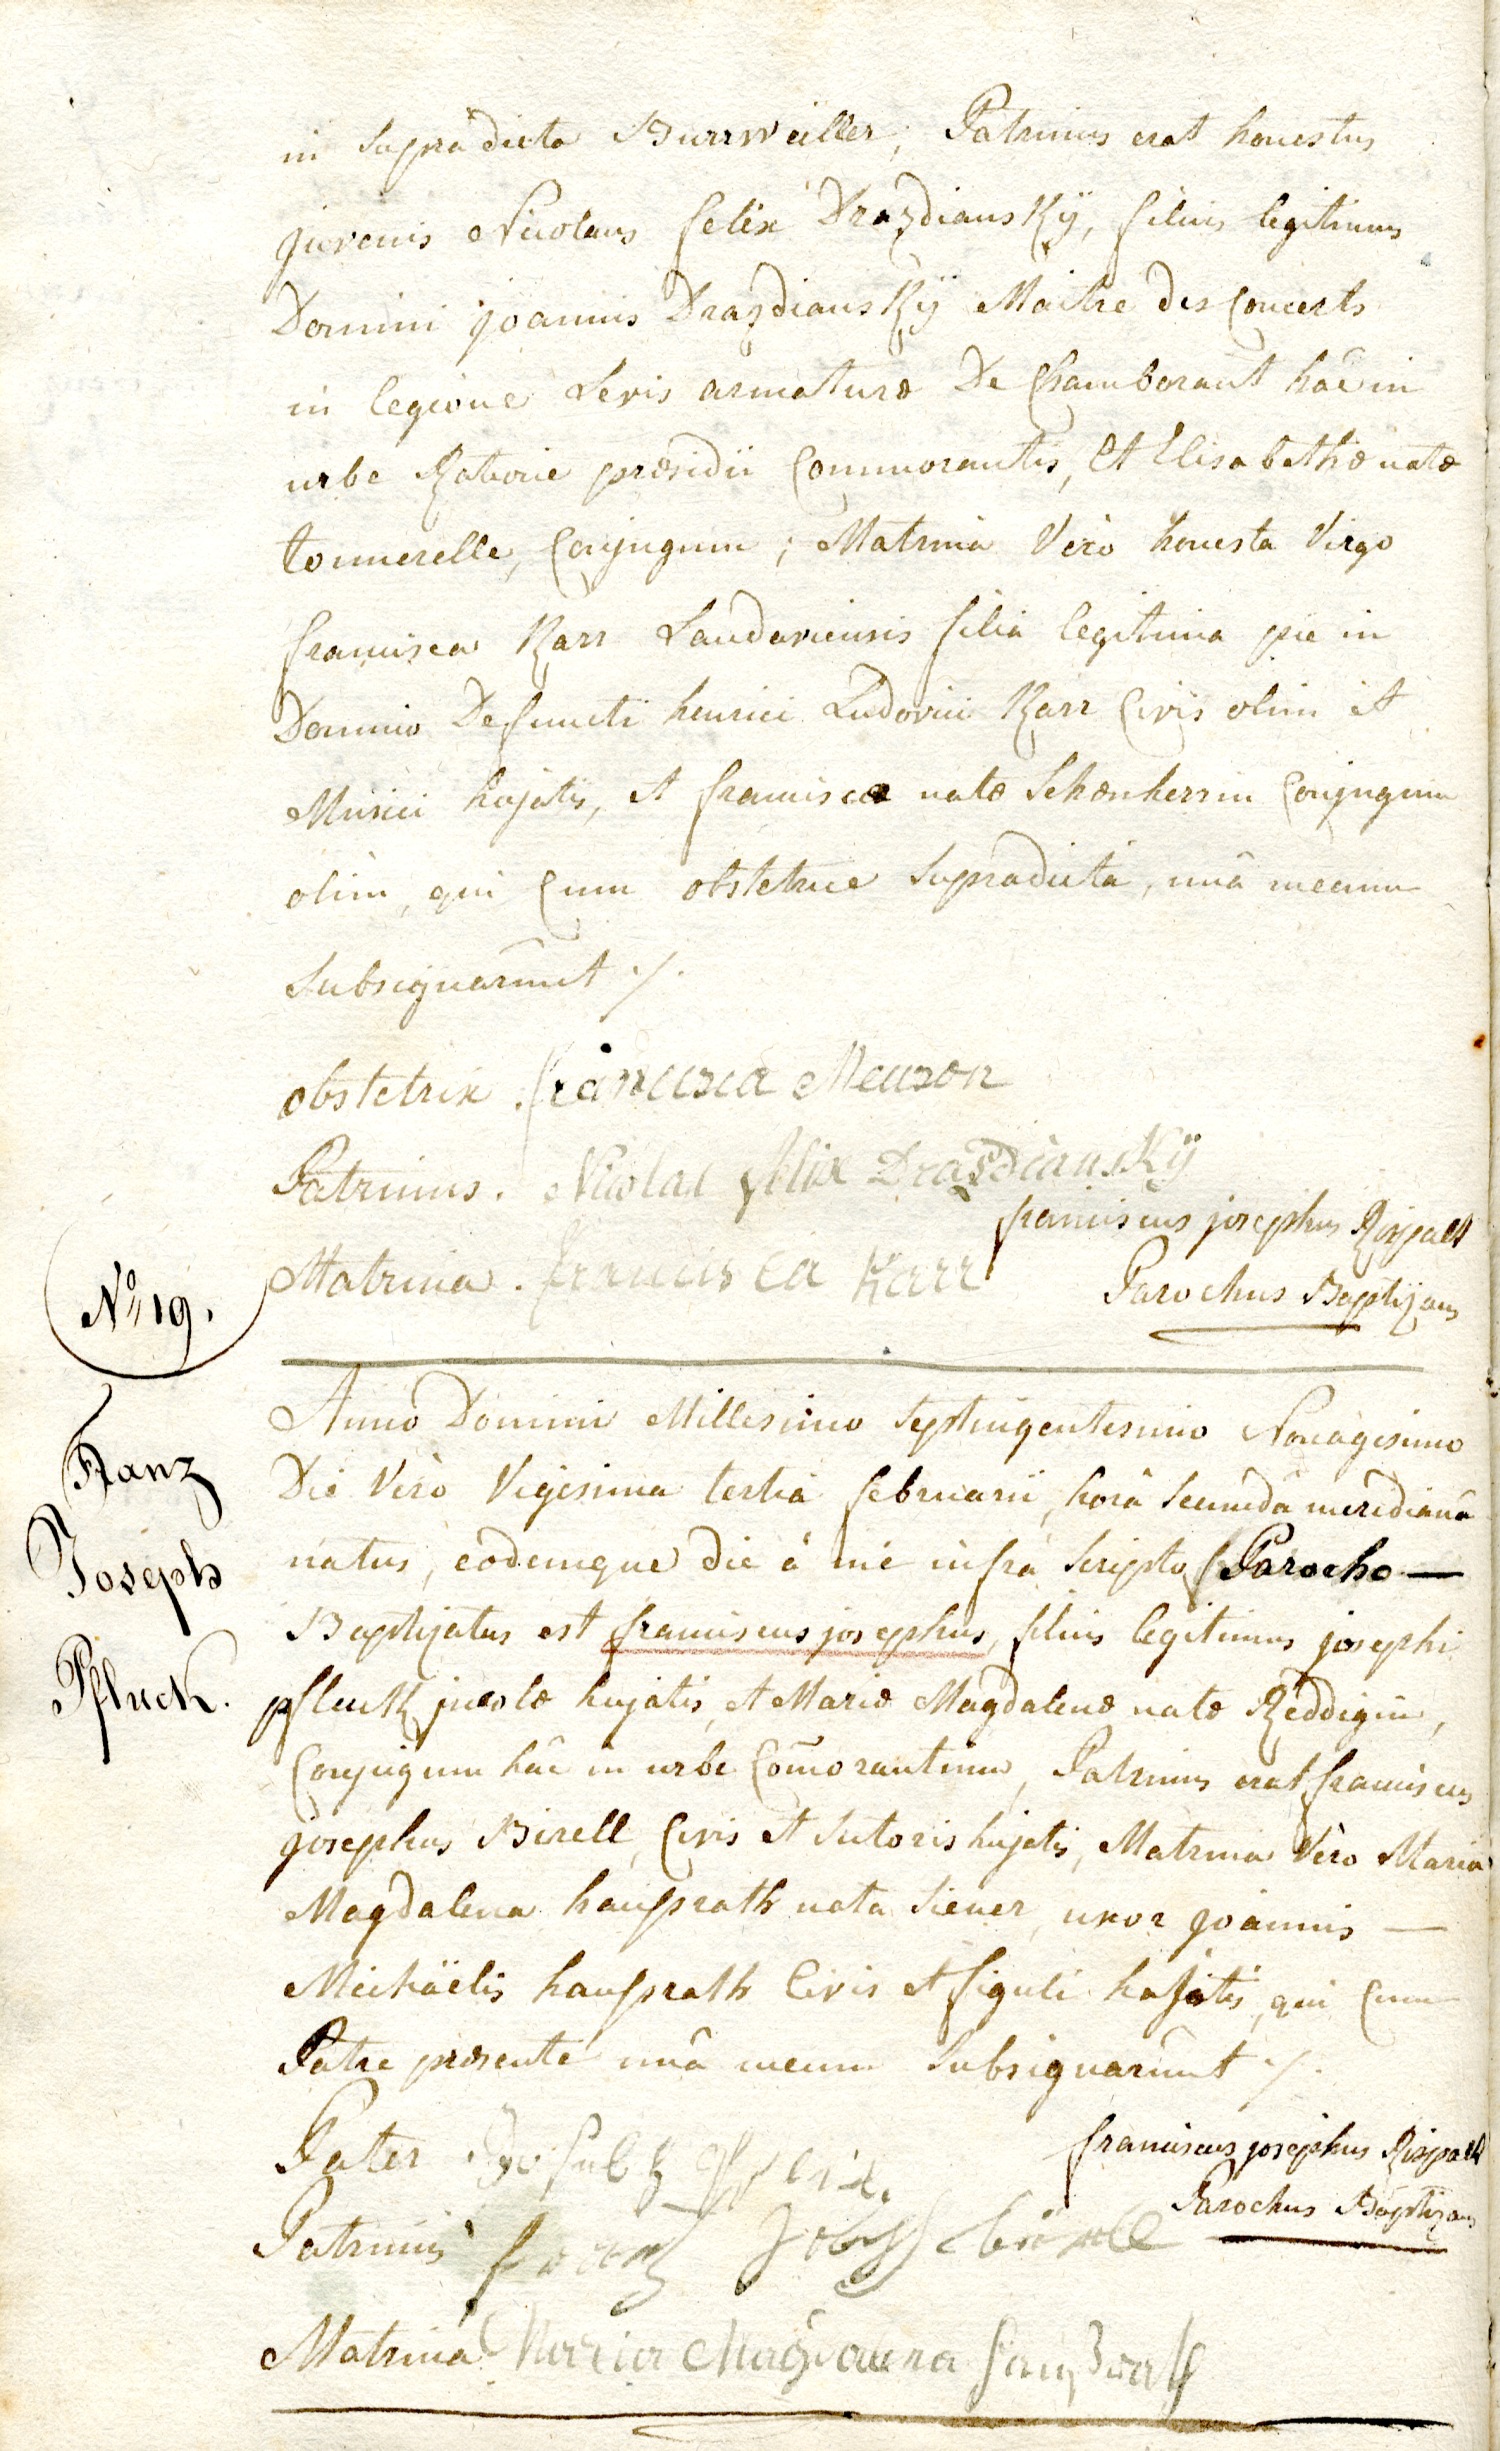 in supradicta Burrweiller, Patrinus erat honestus
juvenis Nicolaus felix DrazdiansKÿ, filius legitimus
Domini joannis DrazdiansKÿ Maitre des Concerts
in legione Levis armaturæ De Chamborant hâc in
urbe Ratione præsidii Commorantis, Et Elisabethæ natæ
tonnerelle, Conjugum; Matrina Verò honesta Virgo
francisca Karr Landaviensis filia legitima pie in
Domino Defuncti henrici Ludovici Karr Civis olim et
Musici hujatis, et franciscæ natæ Schœnherrin Conjugum
olim, qui Cum obstetrice supradictâ, unâ mecum
subsignarûnt ./.
obstetrix . francisca Meuron
Patrinus . Nicolas felix DrasdiansKÿ
franciscus josephus Rippalt
Matrina . francisca Karr
Parochus Baptizans
No 19.
Anno Domini Millesimo septingentesimo Nonagesimo
Die Verò Vigesima tertiâ februarii, horâ secundâ meridianâ
natus, eôdemque die â me infra scripto Parocho —
Baptizatus est franciscus josephus, filius legitimus josephi
pflucK incolæ hujatis, et Mariæ Magdalenæ natæ Reddigin,
Conjugum hâc in urbe Com̃orantium, Patrinus erat franciscus
josephus Birell, Civis et Sutoris hujatis, Matrina Vèro Maria
Magdalena hausprath nata Siener, uxor joannis —
Michäelis hausprath Civis et figuli hujatis, qui Cum
Patre præsente unâ mecum Subsignarûnt ./.
Franz
Joseph
Pfluck.
Pater
franciscus josephus Rippalt
Parochus Baptizans
Patrinus franz
Matrina Maria Magdalena